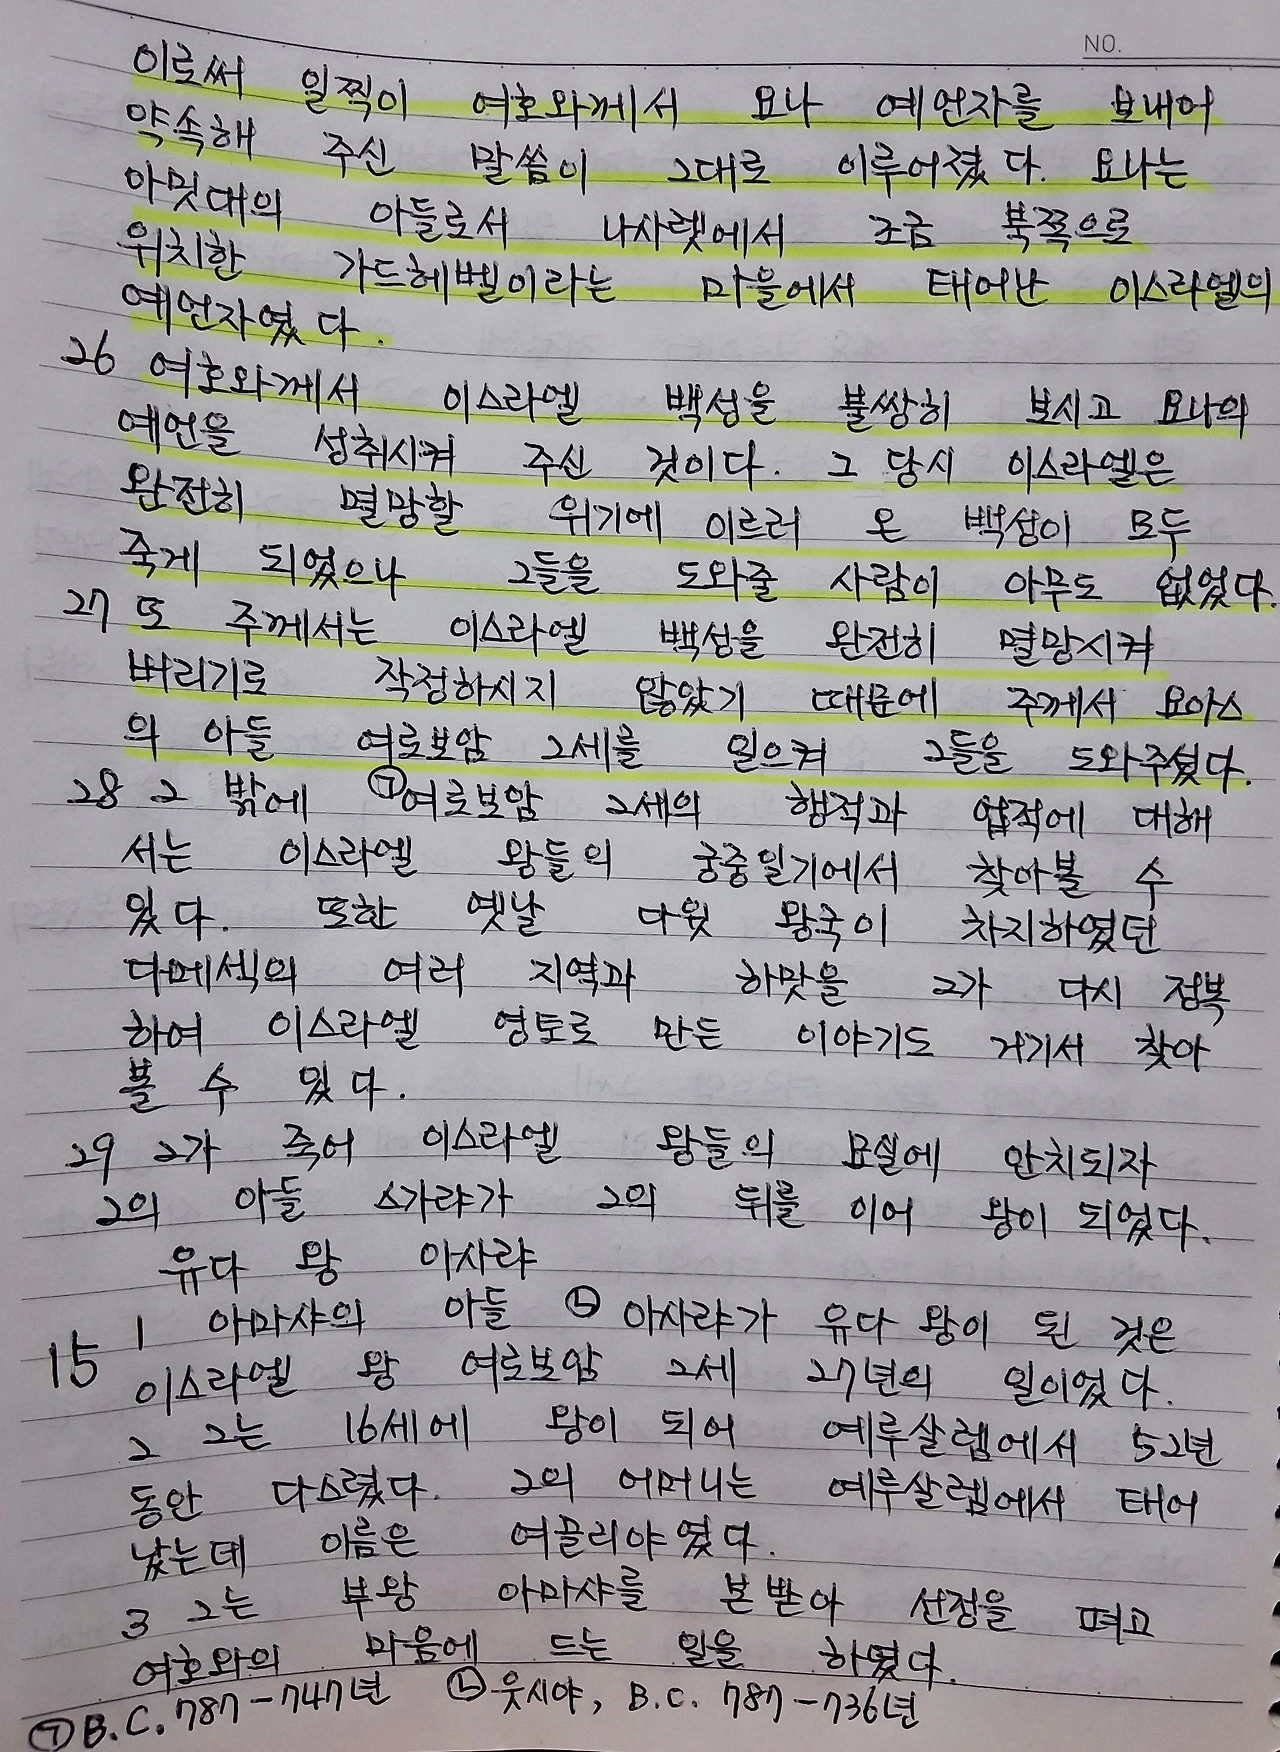 NO.
이로써 일찍이 여호와께서 요나 예언자를 보내어
약속해 주신 말씀이 그대로 이루어졌다. 요나는
아밋대의 아들로서 나사렛에서 조금 북쪽으로
위치한 가드헤벨이라는 마을에서 태어난 이스라엘의
예언자였다.
26 여호와께서 이스라엘 백성을 불쌍히 보시고 요나의
예언을 성취시켜 주신 것이다. 그 당시 이스라엘은
완전히 멸망할 위기에 이르러 온 백성이 모두
죽게 되었으나 그들을 도와줄 사람이 아무도 없었다.
27 또 주께서는 이스라엘 백성을 완전히 멸망시켜
버리기로 작정하시지 않았기 때문에 주께서 요아스
의 아들 여로보암 2세를 일으켜 그들을 도와주셨다.
28 그 밖에 ㉠여로보암 2세의 행적과 업적에 대해
서는 이스라엘 왕들의 궁중일기에서 찾아볼 수
있다. 또한 옛날 다윗 왕국이 차지하였던
다메섹의 여러 지역과 하맛을 그가 다시 정복
하여 이스라엘 영토로 만든 이야기도 거기서 찾아
볼 수 있다.
29 그가 죽어 이스라엘 왕들의 묘실에 안치되자
그의 아들 스가랴가 그의 뒤를 이어 왕이 되었다.
유다 왕 아사랴
15 1 아마샤의 아들 ㉡ 아사랴가 유다 왕이 된 것은
이스라엘 왕 여로보암 2세 27년의 일이었다.
2 그는 16세에 왕이 되어 예루살렘에서 52년
동안 다스렸다. 그의 어머니는 예루살렘에서 태어
났는데 이름은 여골리야였다.
3 그는 부왕 아마샤를 본받아 선정을 펴고
여호와의 마음에 드는 일을 하였다.
㉠ B.C. 787-747년 ㉡ 웃시야, B.C. 787-736년